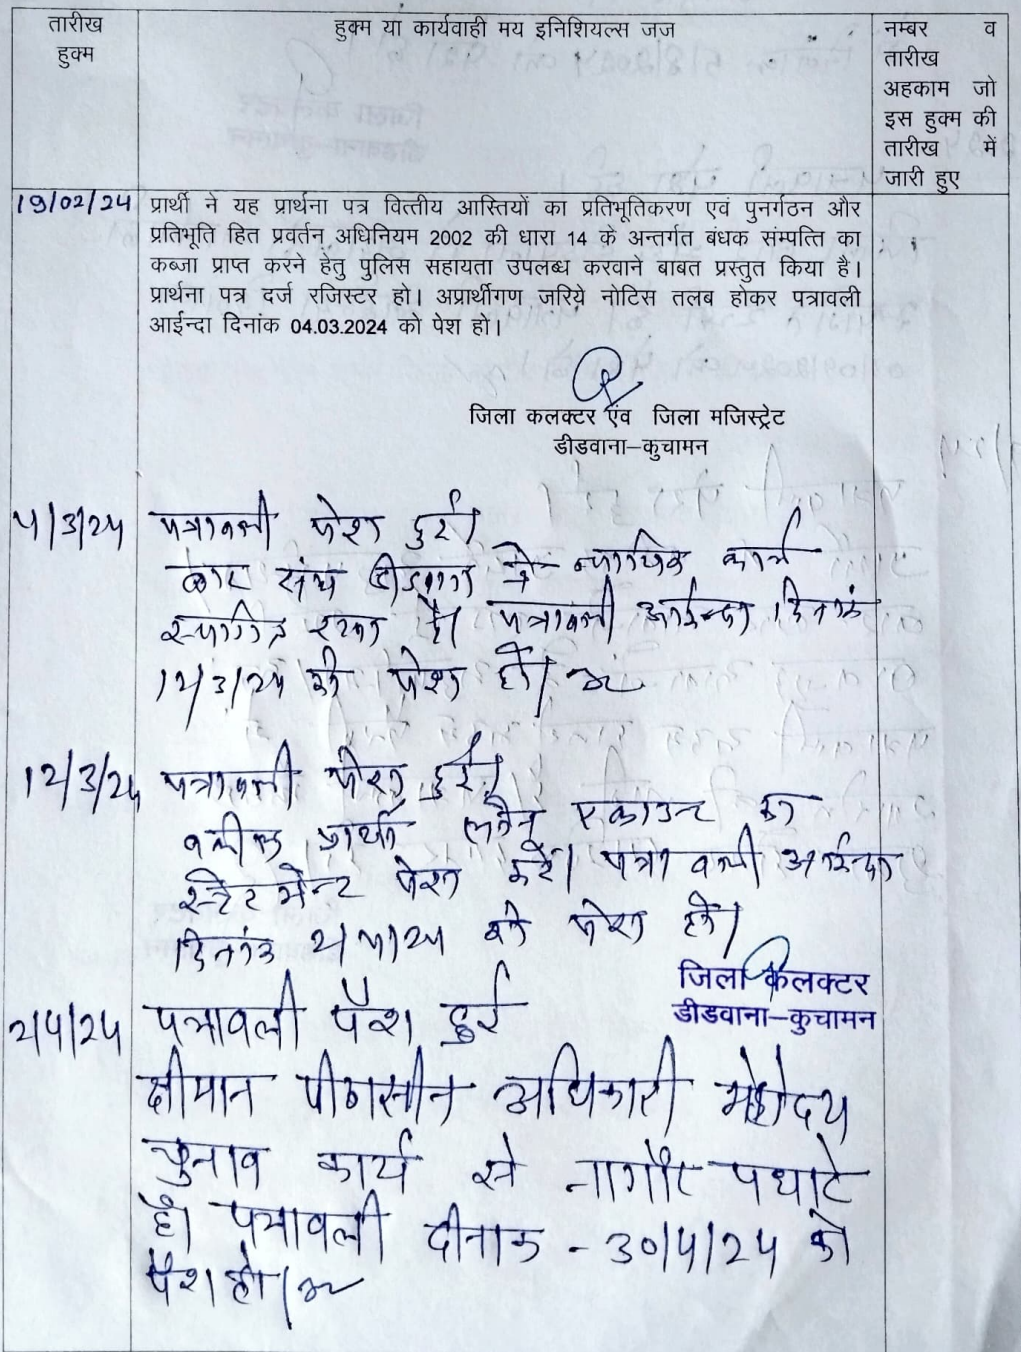 तारीख
हुक्म
हुक्म या कार्यवाही मय इनिशियल्स जज
नम्बर व
तारीख
अहकाम जो
इस हुक्म की
तारीख में
जारी हुए
19/02/24 प्रार्थी ने यह प्रार्थना पत्र वित्तीय आस्तियों का प्रतिभूतिकरण एवं पुनर्गठन और
प्रतिभूति हित प्रवर्तन अधिनियम 2002 की धारा 14 के अन्तर्गत बंधक सम्पत्ति का
कब्जा प्राप्त करने हेतु पुलिस सहायता उपलब्ध करवाने बाबत प्रस्तुत किया है।
प्रार्थना पत्र दर्ज रजिस्टर हो। अप्रार्थीगण जरिये नोटिस तलब होकर पत्रावली
आईन्दा दिनांक 04.03.2024 को पेश हो।
जिला कलक्टर एंव जिला मजिस्ट्रेट
डीडवाना–कुचामन
4/3/24 पत्रावली पेश हुई।
बार संघ डीडवाना ने न्यायिक कार्य
स्थगित रखा है। पत्रावली आईन्दा दिनांक
12/3/24 को पेश हो।
12/3/24 पत्रावली पेश हुई।
वकील प्रार्थी लोन एकाउन्ट का
स्टेटमेन्ट पेश करें। पत्रावली आईन्दा
दिनांक 2/4/24 को पेश हो।
जिला कलक्टर
डीडवाना–कुचामन
2/4/24 पत्रावली पैश हुई
श्रीमान पीठासीन अधिकारी महोदय
चुनाव कार्य से नागौर पधारे
है। पत्रावली दीनाक - 30/4/24 को
पैश हो।